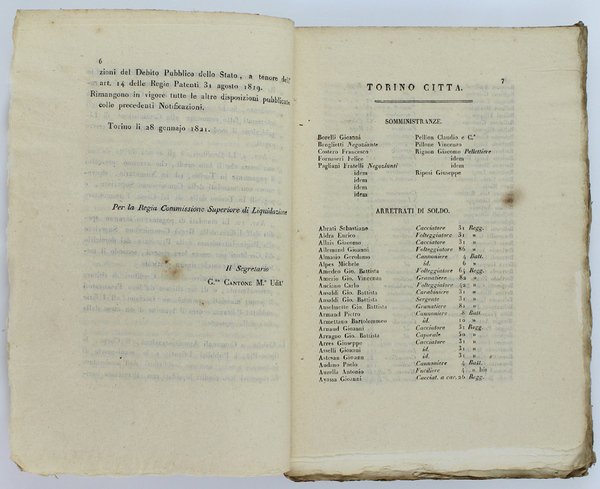 6
zioni del Debito Pubblico dello Stato, a tenore dell'
art. 14 delle Regie Patenti 31 agosto 1819.
Rimangono in vigore tutte le altre disposizioni pubblicate
colle precedenti Notificazioni.
Torino li 28 gennajo 1821.
Per la Regia Commissione Superiore di Liquidazione
Il Segretario
CANTONE M.° Udit.
7
TORINO CITTA.
SOMMINISTRANZE.
Borelli Gioanni Pellion Claudio e C.ª
Broglietti Negoziante Pillone Vincenzo
Costero Francesco Rignon Giacomo Pellettiere
Fornaseri Felice idem
Pagliani Fratelli Negozianti idem
idem Riposi Giuseppe
idem
idem
idem
ARRETRATI DI SOLDO.
Abrati Sebastiano Cacciatore 31 Regg.
Aldra Enrico Volteggiatore 31 »
Alluis Giacomo Cacciatore 31 »
Allemand Gioanni Volteggiatore 86 »
Almasio Gerolamo Cannoniere 4 Batt.
Alpes Michele id. 6 »
Amedeo Gio. Battista Volteggiatore 64 Regg.
Amerio Gio. Vincenzo Granatiere 82 »
Anciano Carlo Volteggiatore 42 »
Ansaldi Gio. Battista Carabiniere 31 »
Ansaldi Gio. Battista Sergente 31 »
Anselmette Gio. Battista Granatiere 81 »
Armand Pietro Cannoniere 6 Batt.
Armettano Bartolommeo id. 10 »
Arnaud Gioanni Cacciatore 31 Regg.
Arragno Gio. Battista Caporale 50 »
Arres Giuseppe Cacciatore 31 »
Asselli Gioanni id. 31 »
Astesan Gioann id. 31 »
Audeno Paolo Cannoniere 4 Batt.
Aurella Antonio Fuciliere 4 » bis
Ayassa Gioanni Cacciat. a cav. 26 Regg.